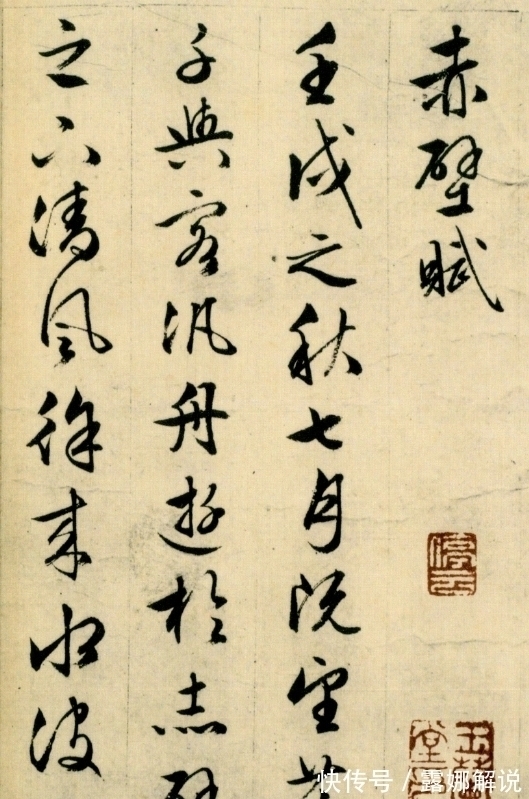 赤壁賦
壬戌之秋七月既望蘇
子與客汎舟遊於赤壁
之下清風徐來水波
停雲
快传号／露娜解说